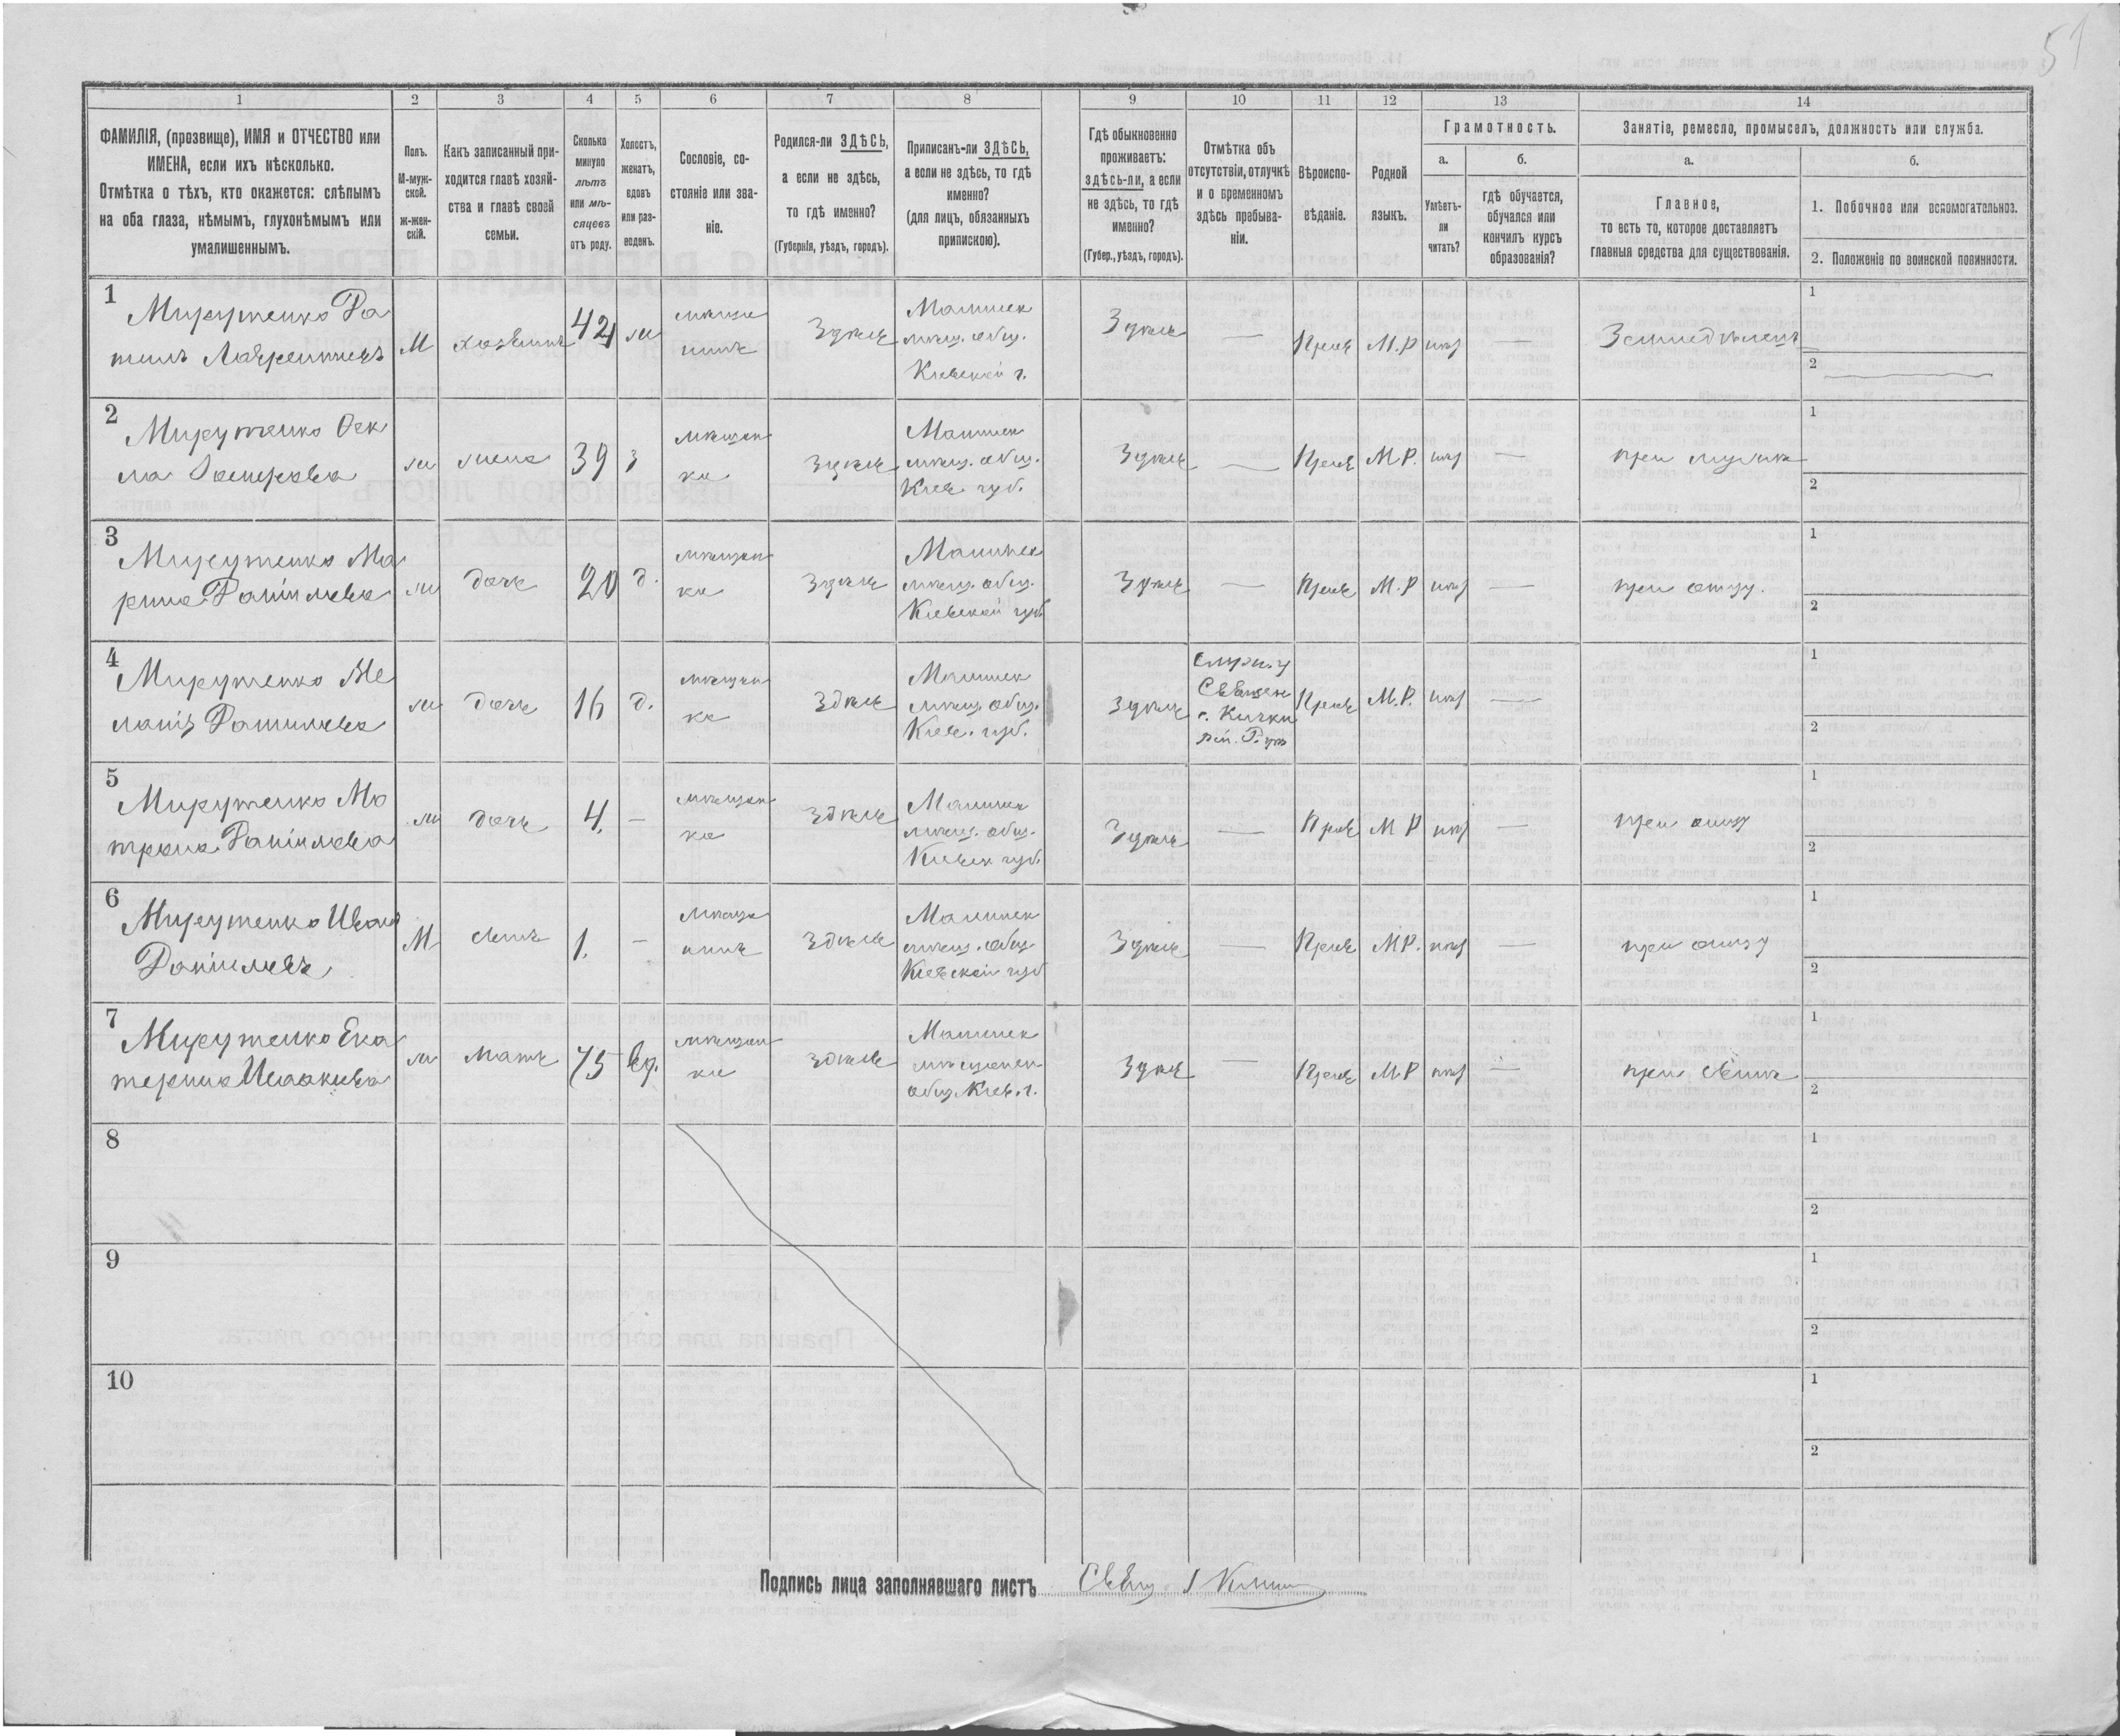 51
1 2 3 4 5 6 7 8 9 10 11 12 13 14
ФАМИЛІЯ, (прозвище), ИМЯ и ОТЧЕСТВО или
ИМЕНА, если ихъ нѣсколько.
Отмѣтка о тѣхъ, кто окажется: слѣпымъ
на оба глаза, нѣмымъ, глухонѣмымъ или
умалишеннымъ.
Полъ.
М-муж-
ской.
ж-жен-
скій.
Какъ записанный при-
ходится главѣ хозяй-
ства и главѣ своей
семьи.
Сколько
минуло
лѣтъ
или мѣ-
сяцевъ
отъ роду.
Холостъ,
женатъ,
вдовъ
или раз-
веденъ.
Сословіе, со-
стояніе или зва-
ніе.
Родился-ли ЗДѢСЬ,
а если не здѣсь,
то гдѣ именно?
(Губернія, уѣздъ, городъ).
Приписанъ-ли ЗДѢСЬ,
а если не здѣсь, то гдѣ
именно?
(для лицъ, обязанныхъ
припискою).
Гдѣ обыкновенно
проживаетъ:
здѣсь-ли, а если
не здѣсь, то гдѣ
именно?
(Губер., уѣздъ, городъ).
Отмѣтка объ
отсутствіи, отлучкѣ
и о временномъ
здѣсь пребыва-
ніи.
Вѣроиспо-
вѣданіе.
Родной
языкъ.
Грамотность.
а.
Умѣетъ-
ли
читать?
б.
гдѣ обучается,
обучался или
кончилъ курсъ
образованія?
Занятіе, ремесло, промыселъ, должность или служба.
а.
Главное,
то есть то, которое доставляетъ
главныя средства для существованія.
б.
1. Побочное или вспомогательное.
2. Положеніе по воинской повинности.
1
Мирутенко Да
ніилъ Лаврентіевъ
М хозяинъ 42 ж
мѣща
нинъ
Здѣсь
Малинск
мѣщ. общ.
Кіевской г.
Здѣсь — Прав М.Р нѣт — Земледѣлецъ
1
2
2
Мирутенко Фек
ла
ж жена 39 з
мѣщан
ка
Здѣсь
Малинск
мѣщ. общ.
Кіев. губ.
Здѣсь — Прав М Р. нѣт — при мужѣ
1
2
3
Мирутенко Ма
рина Даніилова
ж дочь 20 д.
мѣщан
ка
Здѣсь
Малинск
мѣщ. общ.
Кіевской губ
Здѣсь — Прав М.Р нѣт — при отцу.
1
2
4
Мирутенко Ме
ланія Даніилова
ж дочь 16 д.
мѣщан
ка
Здѣсь
Малинск
мѣщ. общ.
Кіев. губ.
Здѣсь
Служ. у
Священ
с. Кички
Прав М.Р. нѣт —
1
2
5
Мирутенко Мо
трона Даніилова
ж дочь 4. —
мѣщан
ка
Здѣсь
Малинск
мѣщ. общ.
Кіевск губ.
Здѣсь — Прав М Р нѣт — при отцу
1
2
6
Мирутенко Иван
Даніиловъ
М сынъ 1. —
мѣща
нинъ
Здѣсь
Малинск
мѣщ. общ.
Кіевской губ
Здѣсь — Прав М Р. нѣт — при отцу
1
2
7
Мирутенко Ека
терина Исаакіева
ж мать 75 вд.
мѣщан
ка
Здѣсь
Малинск
мѣщанск
общ. Кіев. г.
Здѣсь — Прав М.Р нѣт — при сынѣ
1
2
8
1
2
9
1
2
10
1
2
Подпись лица заполнявшаго листъ Свящ.